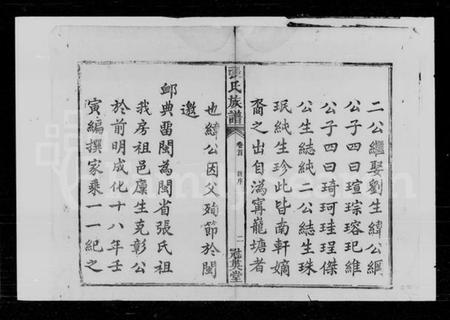 二公繼娶劉生緯公綱
公子四曰瑄琮瑢玘維
公子四曰琦珂珪珵傑
公生綕純二公綕生珠
珉純生珍此皆南軒嫡
裔之出自溈寧龍塘者
張氏族譜
卷首
新序
二
冠英堂
也緯公因父殉節於閩
邀
卹典留閩為閩省張氏祖
我房祖邑廩生克彰公
於前明成化十八年壬
寅編撰家乘一一紀之